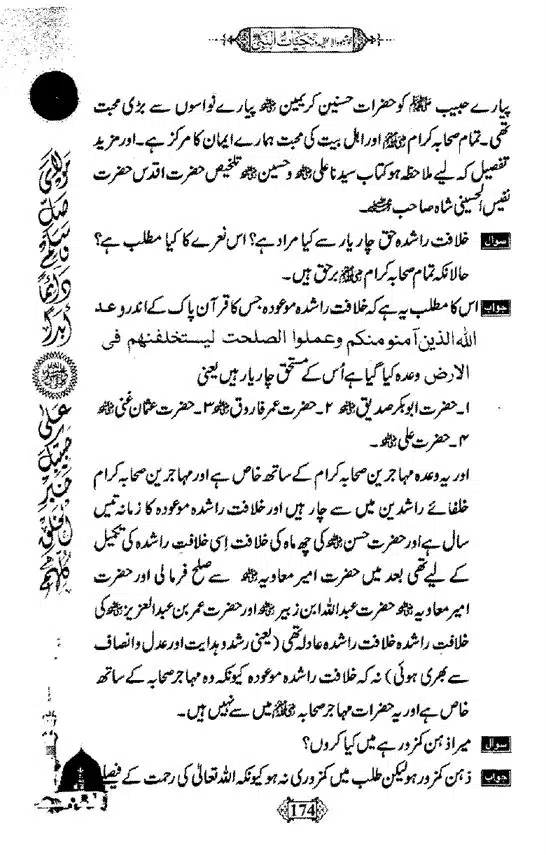 حیات النبی
پیارے حبیب ﷺ کو حضرات حسنین کریمین رضی اللہ عنہما پیارے نواسوں سے بڑی محبت
تھی۔ تمام صحابہ کرام رضی اللہ عنہم اور اہل بیت کی محبت ہمارے ایمان کا مرکز ہے۔ اور مزید
تفصیل کہ لیے ملاحظہ ہو کتاب سیدنا علی رضی اللہ عنہ و حسین رضی اللہ عنہ تلخیص حضرت اقدس حضرت
نفیس الحسینی شاہ صاحب۔
سوال خلافت راشدہ حق چار یار سے کیا مراد ہے؟ اس نعرے کا کیا مطلب ہے؟
حالانکہ تمام صحابہ کرام برحق ہیں۔
جواب اس کا مطلب یہ ہے کہ خلافت راشدہ موعودہ جس کا قرآن پاک کے اندر وعد
الله الذين آمنو منكم وعملوا الصلحت ليستخلفنهم فى
الارض وعدہ کیا گیا ہے اُس کے مستحق چار یار ہیں یعنی
۱۔ حضرت ابوبکر صدیق ۲۔ حضرت عمر فاروق ۳۔ حضرت عثمان غنی
۴۔ حضرت علی۔
اور یہ وعدہ مہاجرین صحابہ کرام کے ساتھ خاص ہے اور مہاجرین صحابہ کرام
خلفائے راشدین میں سے چار ہیں اور خلافت راشدہ موعودہ کا زمانہ تیس
سال ہے اور حضرت حسن کی چھ ماہ کی خلافت اِسی خلافتِ راشدہ کی تکمیل
کے لیے تھی بعد میں حضرت امیر معاویہ سے صلح فرمالی اور حضرت
امیر معاویہ حضرت عبداللہ ابن زبیر اور حضرت عمر بن عبدالعزیز کی
خلافتِ راشدہ خلافت راشدہ عادلہ تھی (یعنی رشد و ہدایت اور عدل و انصاف
سے بھری ہوئی) نہ کہ خلافت راشدہ موعودہ کیونکہ وہ مہاجر صحابہ کے ساتھ
خاص ہے اور یہ حضرات مہاجر صحابہ میں سے نہیں ہیں۔
سوال میرا ذہن کمزور ہے میں کیا کروں؟
جواب ذہن کمزور ہو لیکن طلب میں کمزوری نہ ہو کیونکہ اللہ تعالیٰ کی رحمت کے فیصلے
174
مولای صل وسلم دائماً ابدا
علی حبیبک خیر الخلق کلهم